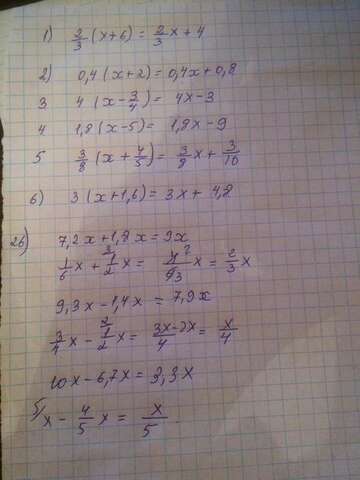 1) 2/3 (x+6) = 2/3 x + 4
2) 0,4 (x+2) = 0,4x + 0,8
3 4 (x - 3/4) = 4x - 3
4 1,8 (x-5) = 1,8x - 9
5 3/8 (x + 4/5) = 3/8 x + 3/10
6) 3 (x+1,6) = 3x + 4,8
26) 7,2x + 1,8x = 9x
1/6 x + 3 1/2 x = 4 2/6 3 x = 2/3 x
9,3x - 1,4x = 7,9x
3/4 x - 2 1/2 x = 3x-2x/4 = x/4
10x - 6,7x = 3,3x
5/ x - 4/5 x = x/5